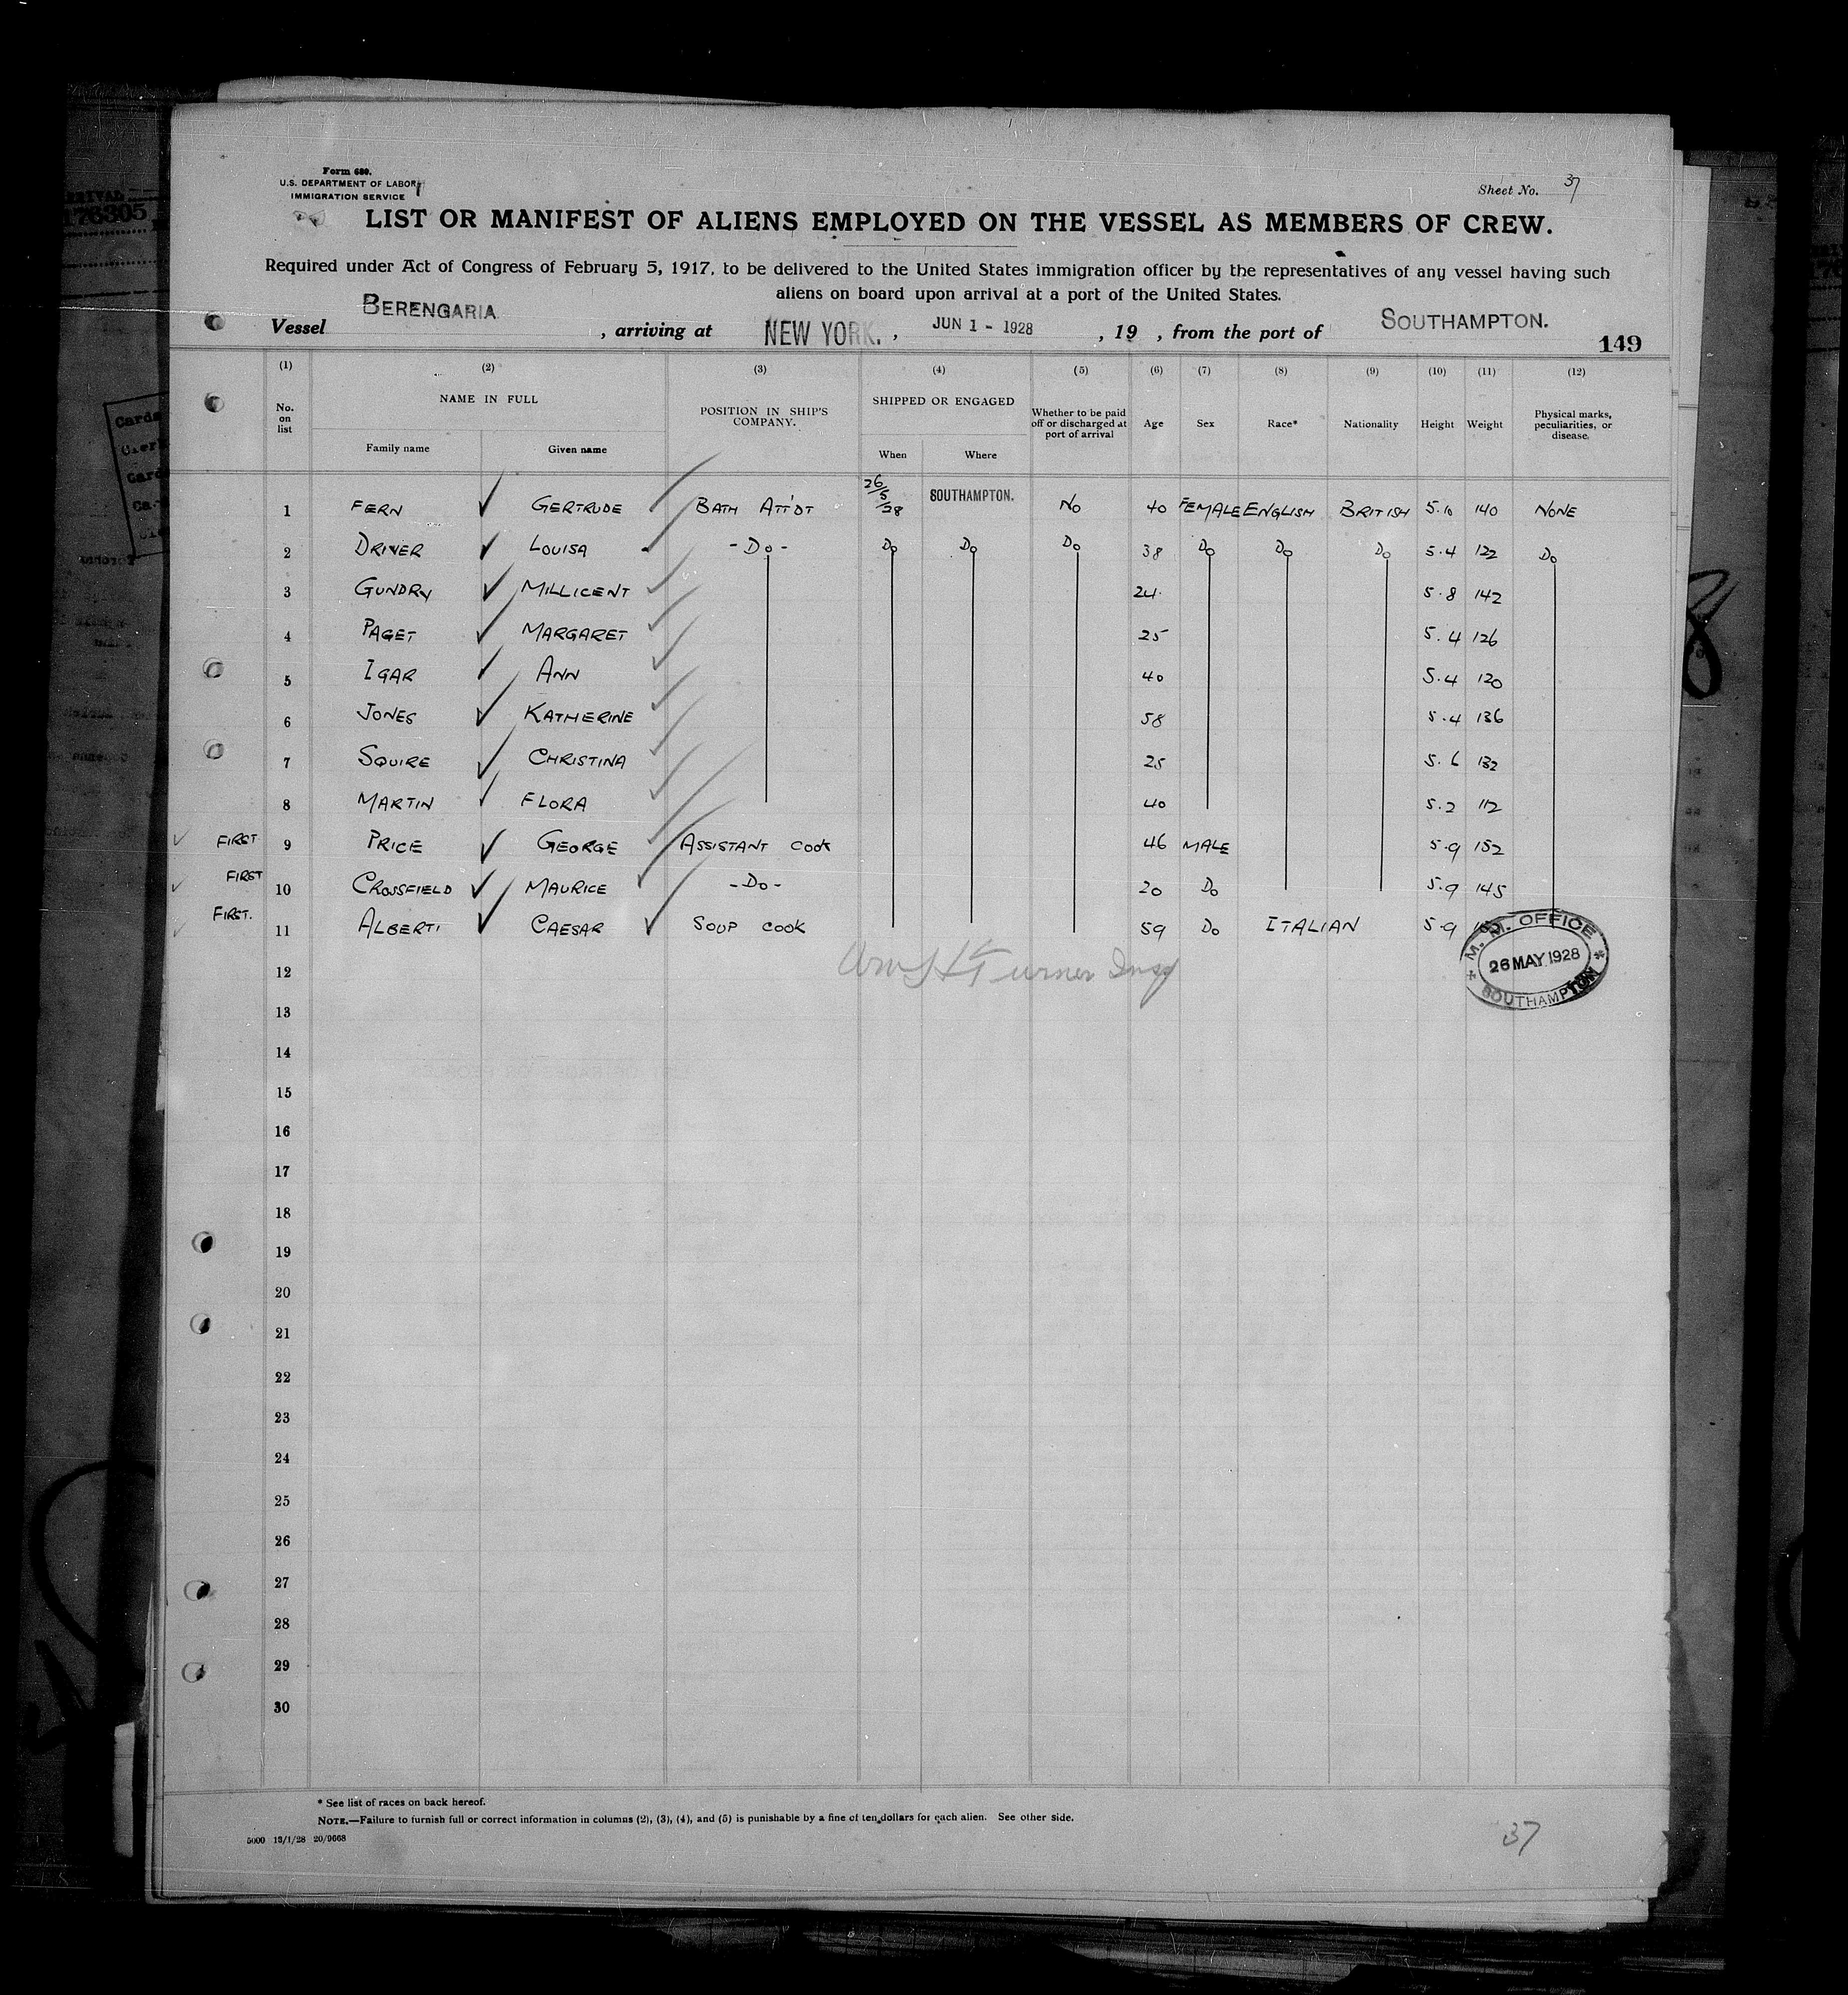 Form 680.
U.S. DEPARTMENT OF LABOR
IMMIGRATION SERVICE
Sheet No. 37
LIST OR MANIFEST OF ALIENS EMPLOYED ON THE VESSEL AS MEMBERS OF CREW.
Required under Act of Congress of February 5, 1917, to be delivered to the United States immigration officer by the representatives of any vessel having such
aliens on board upon arrival at a port of the United States.
Vessel BERENGARIA, arriving at NEW YORK., JUN 1 - 1928, 19 , from the port of SOUTHAMPTON.
149
(1) (2) (3) (4) (5) (6) (7) (8) (9) (10) (11) (12)
No. on list NAME IN FULL POSITION IN SHIP'S COMPANY. SHIPPED OR ENGAGED Whether to be paid off or discharged at port of arrival Age Sex Race* Nationality Height Weight Physical marks, peculiarities, or disease.
Family name Given name When Where
1 FERN GERTRUDE BATH ATT'DT 26/5/28 SOUTHAMPTON. NO 40 FEMALE ENGLISH BRITISH 5.10 140 NONE
2 DRIVER LOUISA -DO- DO DO DO 38 DO DO DO 5.4 122 DO
3 GUNDRY MILLICENT 24 5.8 142
4 PAGET MARGARET 25 5.4 126
5 IGAR ANN 40 5.4 120
6 JONES KATHERINE 58 5.4 136
7 SQUIRE CHRISTINA 25 5.6 132
8 MARTIN FLORA 40 5.2 112
FIRST 9 PRICE GEORGE ASSISTANT COOK 46 MALE 5.9 152
FIRST 10 CROSSFIELD MAURICE -DO- 20 DO 5.9 145
FIRST. 11 ALBERTI CAESAR SOUP COOK 59 DO ITALIAN 5.9
M. M. OFFICE
26 MAY 1928
SOUTHAMPTON
Turner Insp
12
13
14
15
16
17
18
19
20
21
22
23
24
25
26
27
28
29
30
* See list of races on back hereof.
NOTE.—Failure to furnish full or correct information in columns (2), (3), (4), and (5) is punishable by a fine of ten dollars for each alien. See other side.
5000 13/1/28 20/9668
37
176305